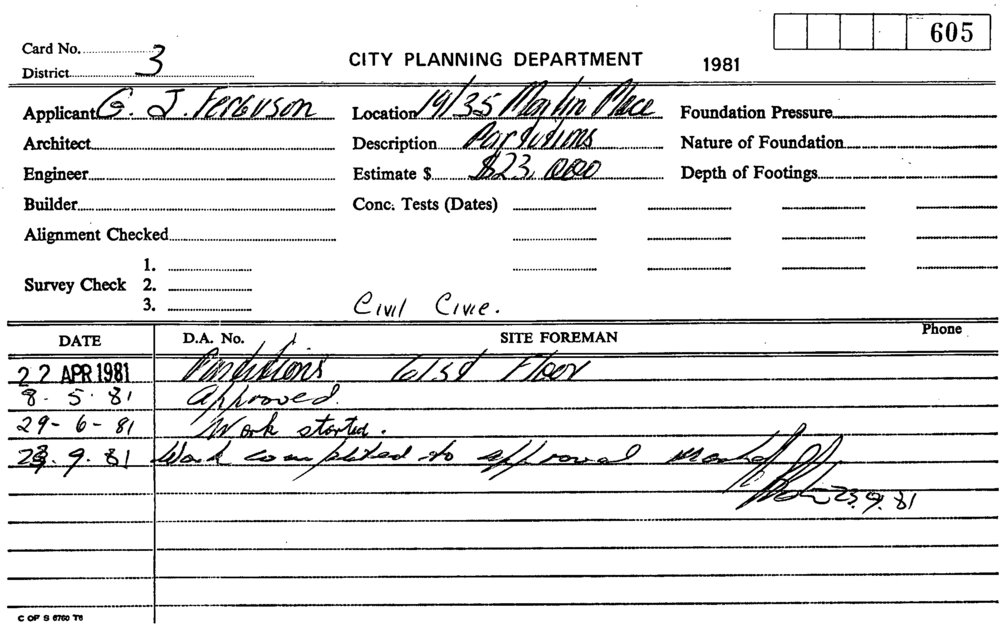 605
Card No. 3
District
CITY PLANNING DEPARTMENT 1981
Applicant G. J. Ferguson Location 19/35 Martin Place Foundation Pressure
Architect Description Partitions Nature of Foundation
Engineer Estimate $ $23,000 Depth of Footings
Builder Conc. Tests (Dates)
Alignment Checked
1.
Survey Check 2.
3.
Civil Civic.
DATE D.A. No. SITE FOREMAN Phone
22 APR 1981 Partitions 61st Floor
8. 5. 81 Approved.
29-6-81 Work started.
23. 9. 81 Work completed to approval
23.9.81
C OF S 6760 T6